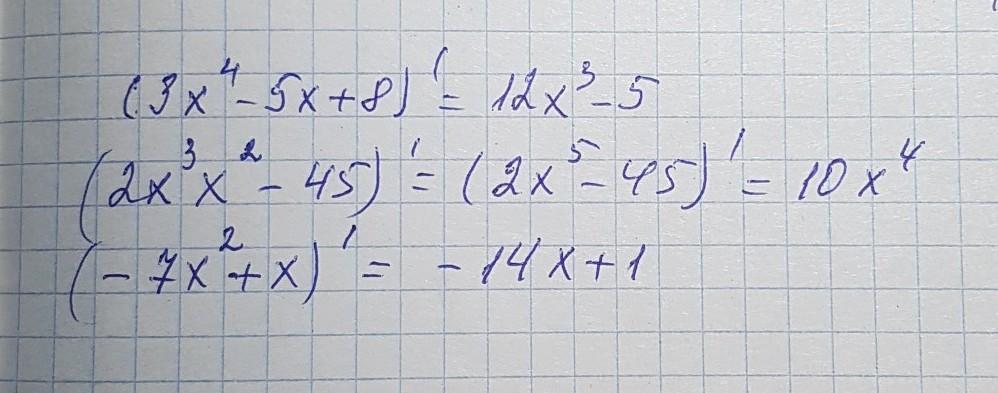 (3x⁴ - 5x + 8)' = 12x³ - 5
(2x³x² - 45)' = (2x⁵ - 45)' = 10x⁴
(-7x² + x)' = -14x + 1